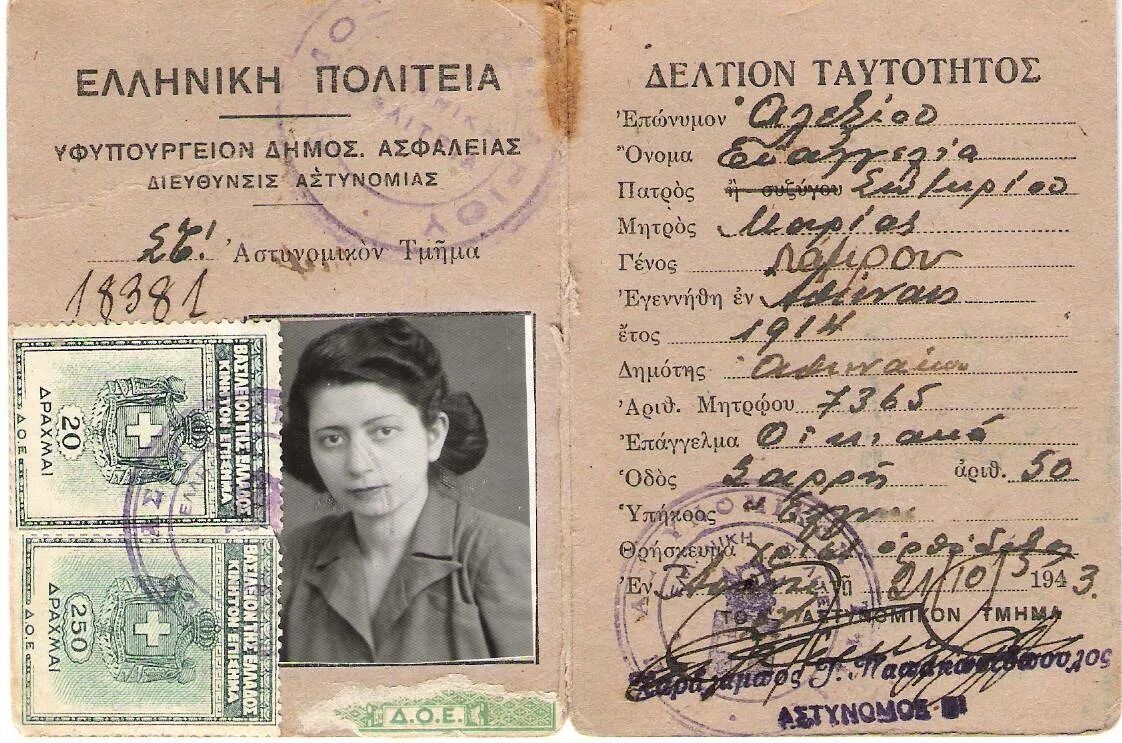 ΕΛΛΗΝΙΚΗ ΠΟΛΙΤΕΙΑ
ΥΦΥΠΟΥΡΓΕΙΟΝ ΔΗΜΟΣ. ΑΣΦΑΛΕΙΑΣ
ΔΙΕΥΘΥΝΣΙΣ ΑΣΤΥΝΟΜΙΑΣ
ΣΤ! Ἀστυνομικὸν Τμῆμα
18381
ΒΑΣΙΛΕΙΟΝ ΤΗΣ ΕΛΛΑΔΟΣ
ΚΙΝΗΤΟΝ ΕΠΙΣΗΜΑ
20
ΔΡΑΧΜΑΙ
Δ.Ο.Ε
ΒΑΣΙΛΕΙΟΝ ΤΗΣ ΕΛΛΑΔΟΣ
ΚΙΝΗΤΟΝ ΕΠΙΣΗΜΑ
250
ΔΡΑΧΜΑΙ
Δ.Ο.Ε
Δ.Ο.Ε.
ΔΕΛΤΙΟΝ ΤΑΥΤΟΤΗΤΟΣ
Ἐπώνυμον Ἀλεξίου
Ὄνομα Εὐαγγελία
Πατρὸς ἢ συζύγου Σωτηρίου
Μητρὸς Μαρίας
Γένος
Ἐγεννήθη ἐν Ἀθήναις
ἔτος 1914
Δημότης Ἀθηναίων
Ἀριθ. Μητρῴου 7365
Ἐπάγγελμα Οἰκιακά
Ὁδὸς Σαρρῆ ἀριθ. 50
Ὑπήκοος
Θρήσκευμα
Ἐν τῇ 21/10/ 1943.
ΤΟ ΑΣΤΥΝΟΜΙΚΟΝ ΤΜΗΜΑ
ΑΣΤΥΝΟΜΟΣ